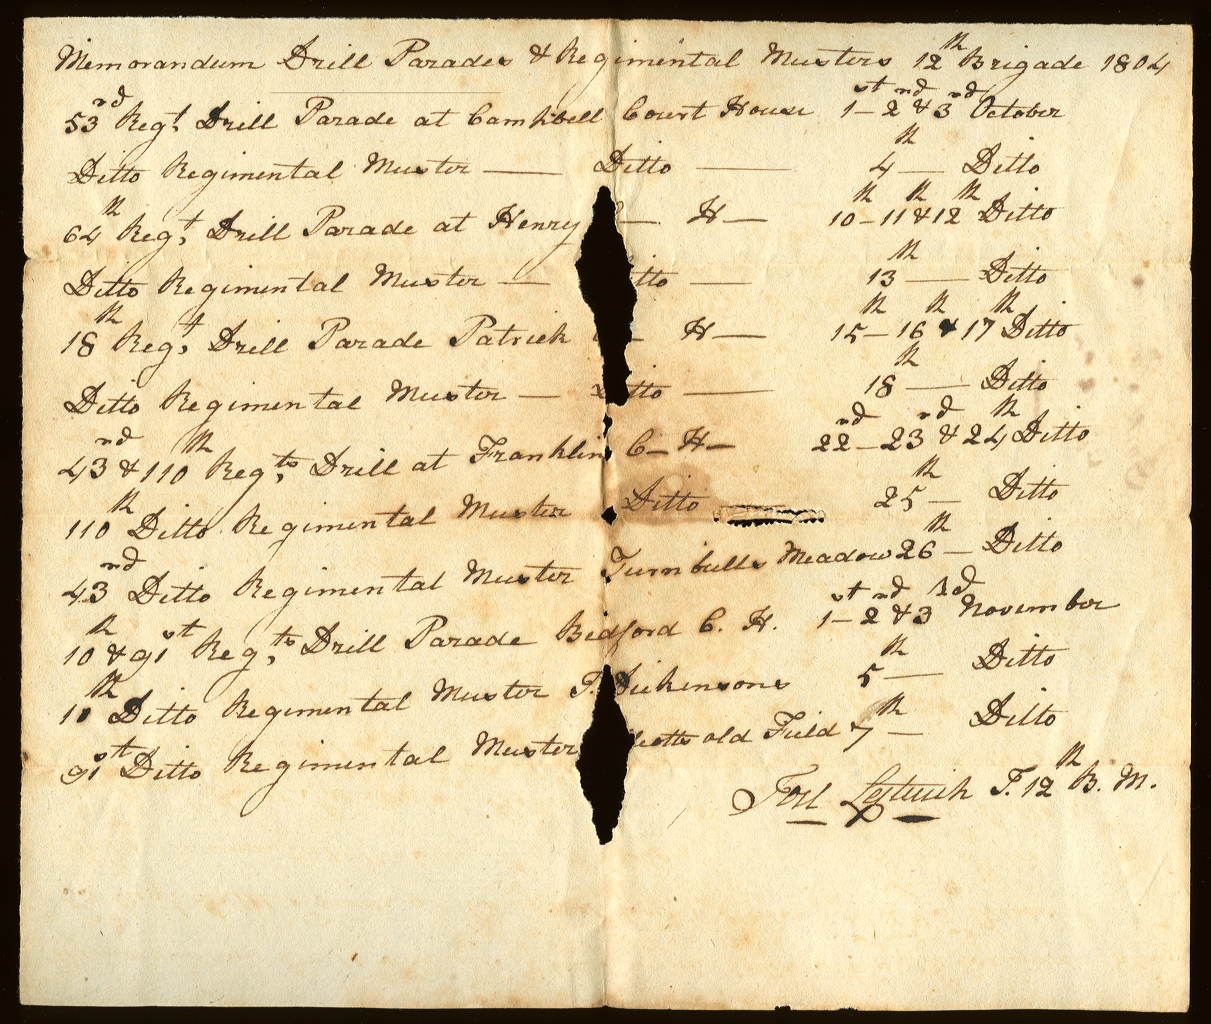 Memorandum Drill Parades & Regimental Musters 12th Brigade 1804
53rd Regt Drill Parade at Cambbell Court House 1st - 2nd & 3rd October
Ditto Regimental Muster — Ditto — 4th — Ditto
64th Regt. Drill Parade at Henry — H — 10th - 11th & 12th Ditto
Ditto Regimental Muster — itto — 13th — Ditto
18th Regt. Drill Parade Patrick — H — 15th - 16th & 17th Ditto
Ditto Regimental Muster — Ditto — 18th — Ditto
43rd & 110th Regts. Drill at Franklin C — H — 22nd - 23rd & 24th Ditto
110th Ditto Regimental Muster Ditto 25th — Ditto
43rd Ditto Regimental Muster Turnbulls Meadow 26th — Ditto
10th & 91st Regts. Drill Parade Bedford C. H. 1st - 2nd & 3rd November
10th Ditto Regimental Muster T. Dickensons 5th — Ditto
91st Ditto Regimental Muster old Field 7th — Ditto
Joel Leftwich T. 12th B. M.